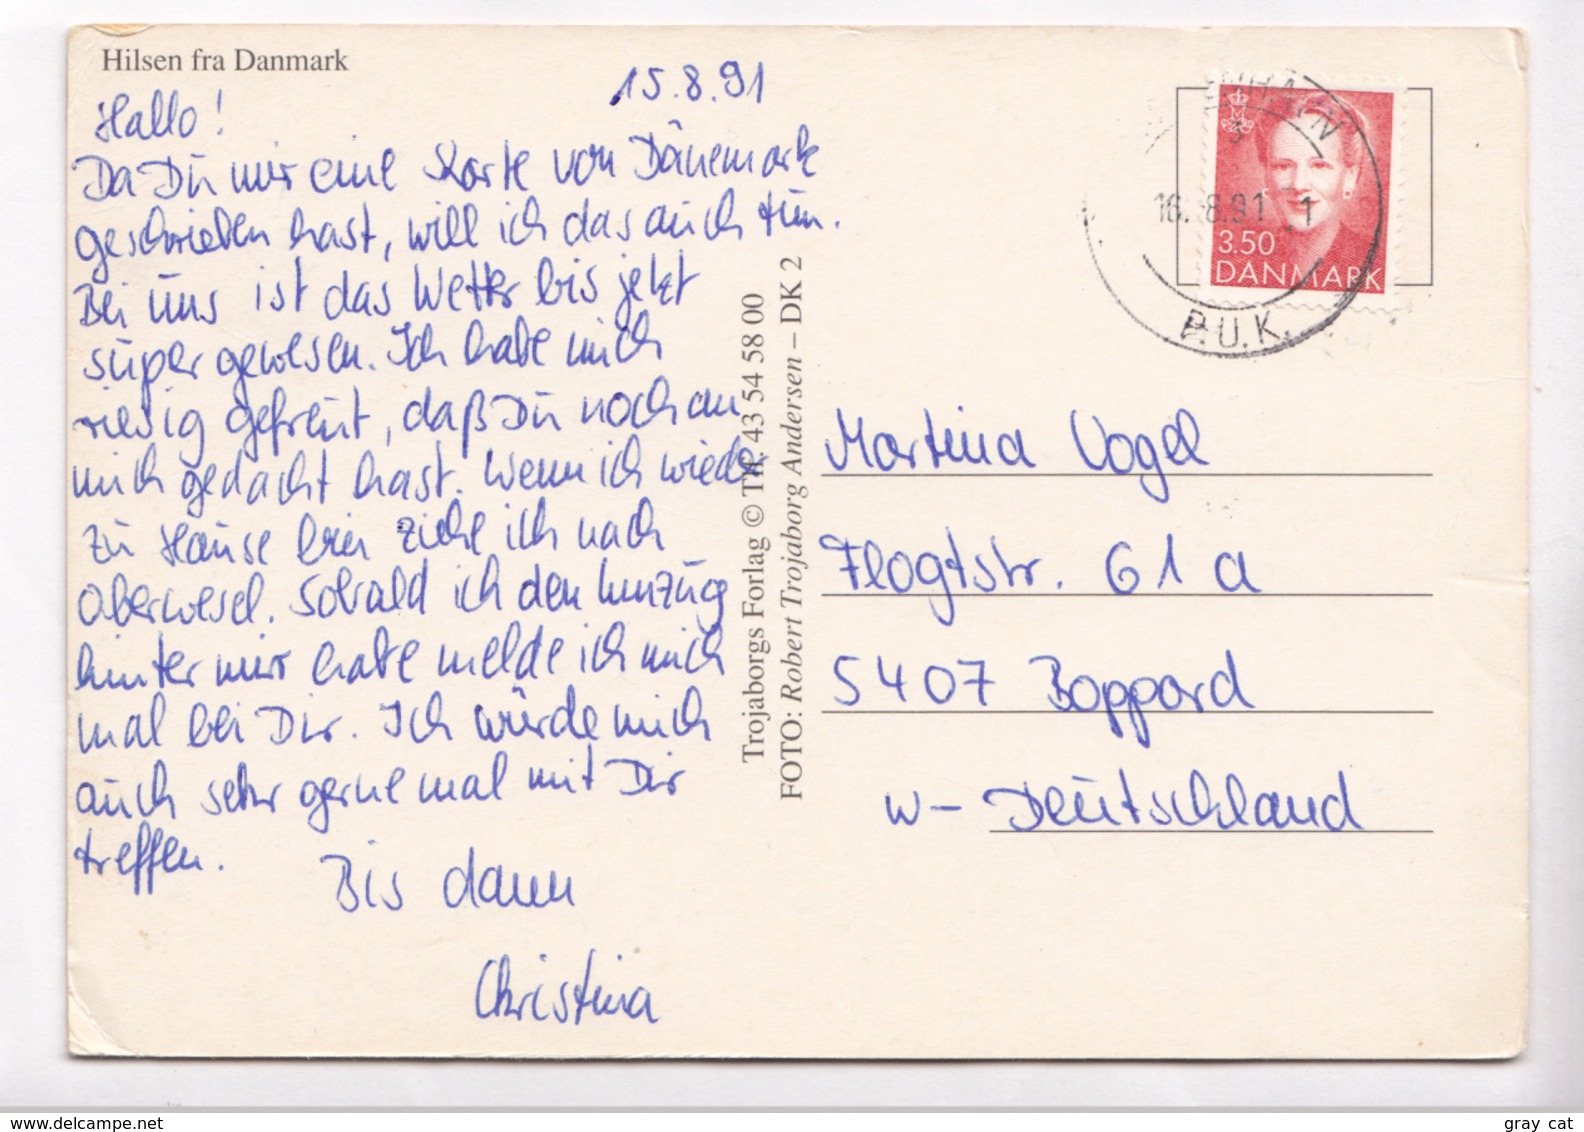 Hilsen fra Danmark
15.8.91
Hallo!
Da Du mir eine Karte von Dänemark
geschrieben hast, will ich das auch tun.
Bei uns ist das Wetter bis jetzt
super gewesen. Ich habe mich
riesig gefreut, daß Du noch an
mich gedacht hast. Wenn ich wieder
zu Hause bin ziehe ich nach
Oberwesel. Sobald ich den Umzug
hinter mir habe melde ich mich
mal bei Dir. Ich würde mich
auch sehr gerne mal mit Dir
treffen.
Bis dann
Christina
Trojaborgs Forlag © Tlf. 43 54 58 00
FOTO: Robert Trojaborg Andersen – DK 2
16. 8.91 1
P.U.K.
3.50
DANMARK
Martina Vogel
Flogtstr. 61 a
5407 Boppard
W- Deutschland
www.delcampe.net
gray cat